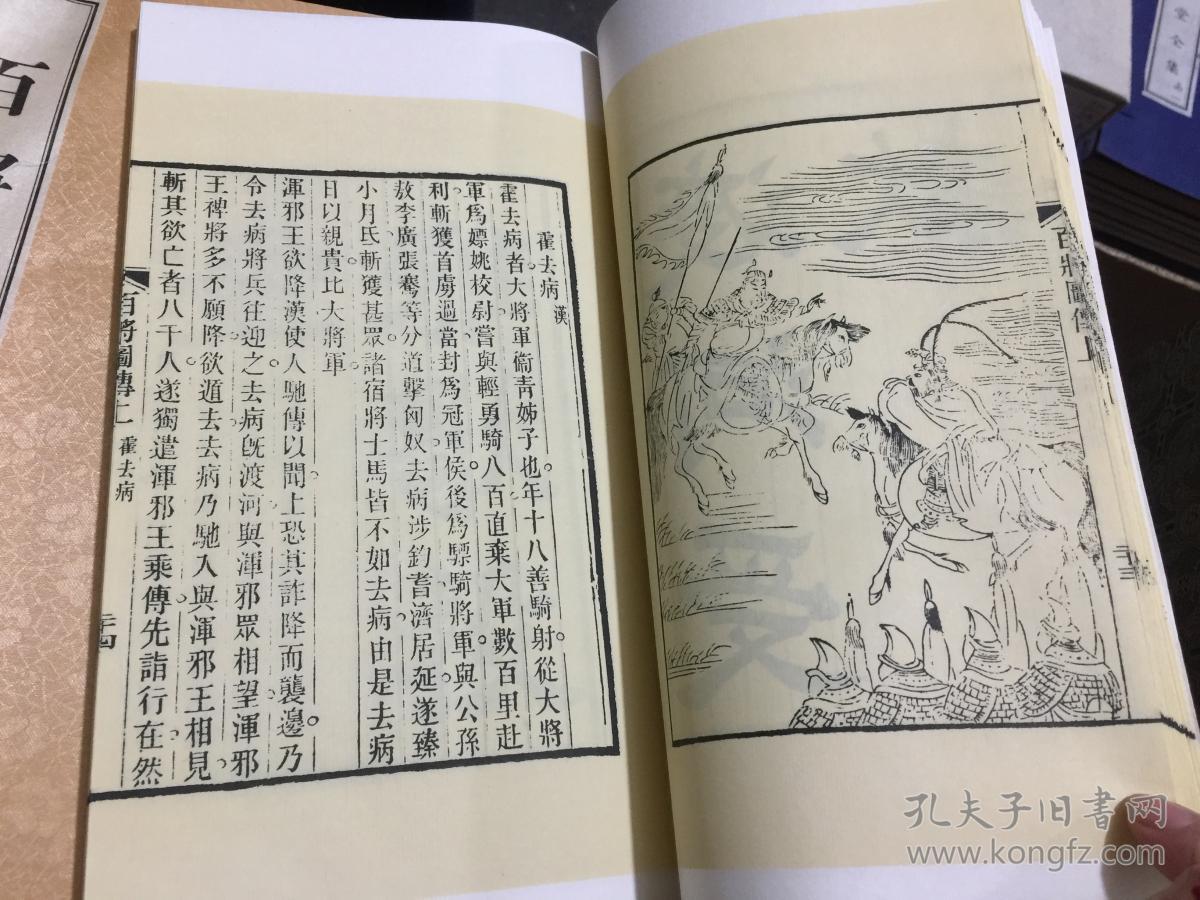 霍去病 漢
霍去病者大將軍衞青姊子也年十八善騎射從大將
軍爲嫖姚校尉嘗與輕勇騎八百直棄大軍數百里赴
利斬獲首虜過當封爲冠軍侯後爲驃騎將軍與公孫
敖李廣張騫等分道擊匈奴去病涉鈞耆濟居延遂臻
小月氏斬獲甚眾諸宿將士馬皆不如去病由是去病
日以親貴比大將軍
渾邪王欲降漢使人馳傳以聞上恐其詐降而襲邊乃
令去病將兵往迎之去病旣渡河與渾邪眾相望渾邪
王裨將多不願降欲遁去去病乃馳入與渾邪王相見
斬其欲亡者八千人遂獨遣渾邪王乘傳先詣行在然
百將圖傳上 霍去病
百將圖傳上
堂全集
孔夫子旧书网
www.kongfz.com